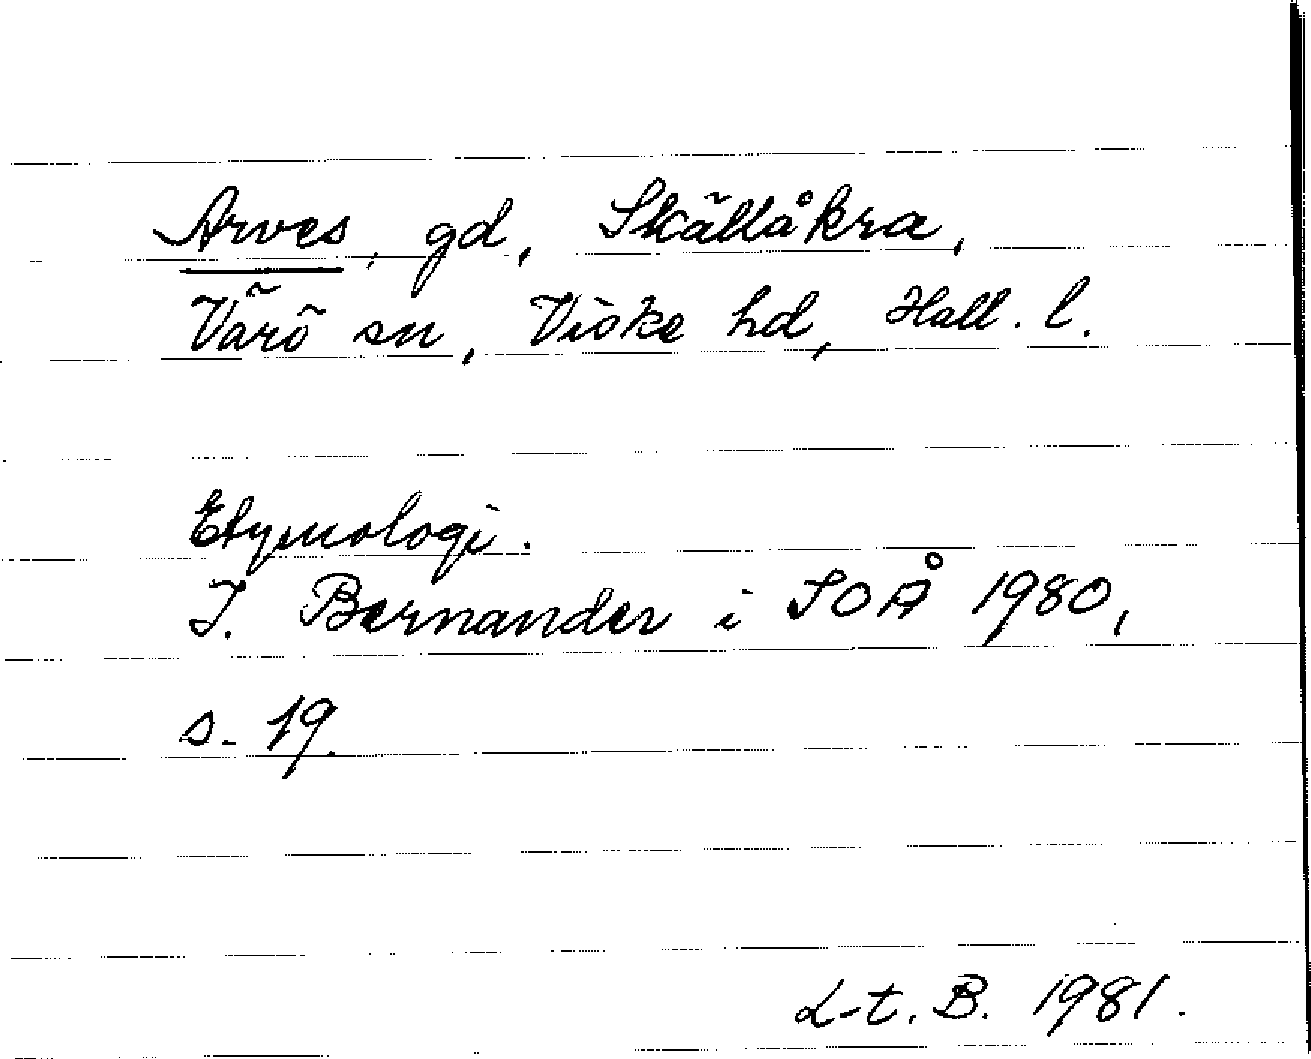 Arves, gd, Skällåkra,
Värö sn, Viske hd, Hall. l.
Etymologi.
I. Bernander i SOÅ 1980,
s. 19.
L-t. B. 1981.